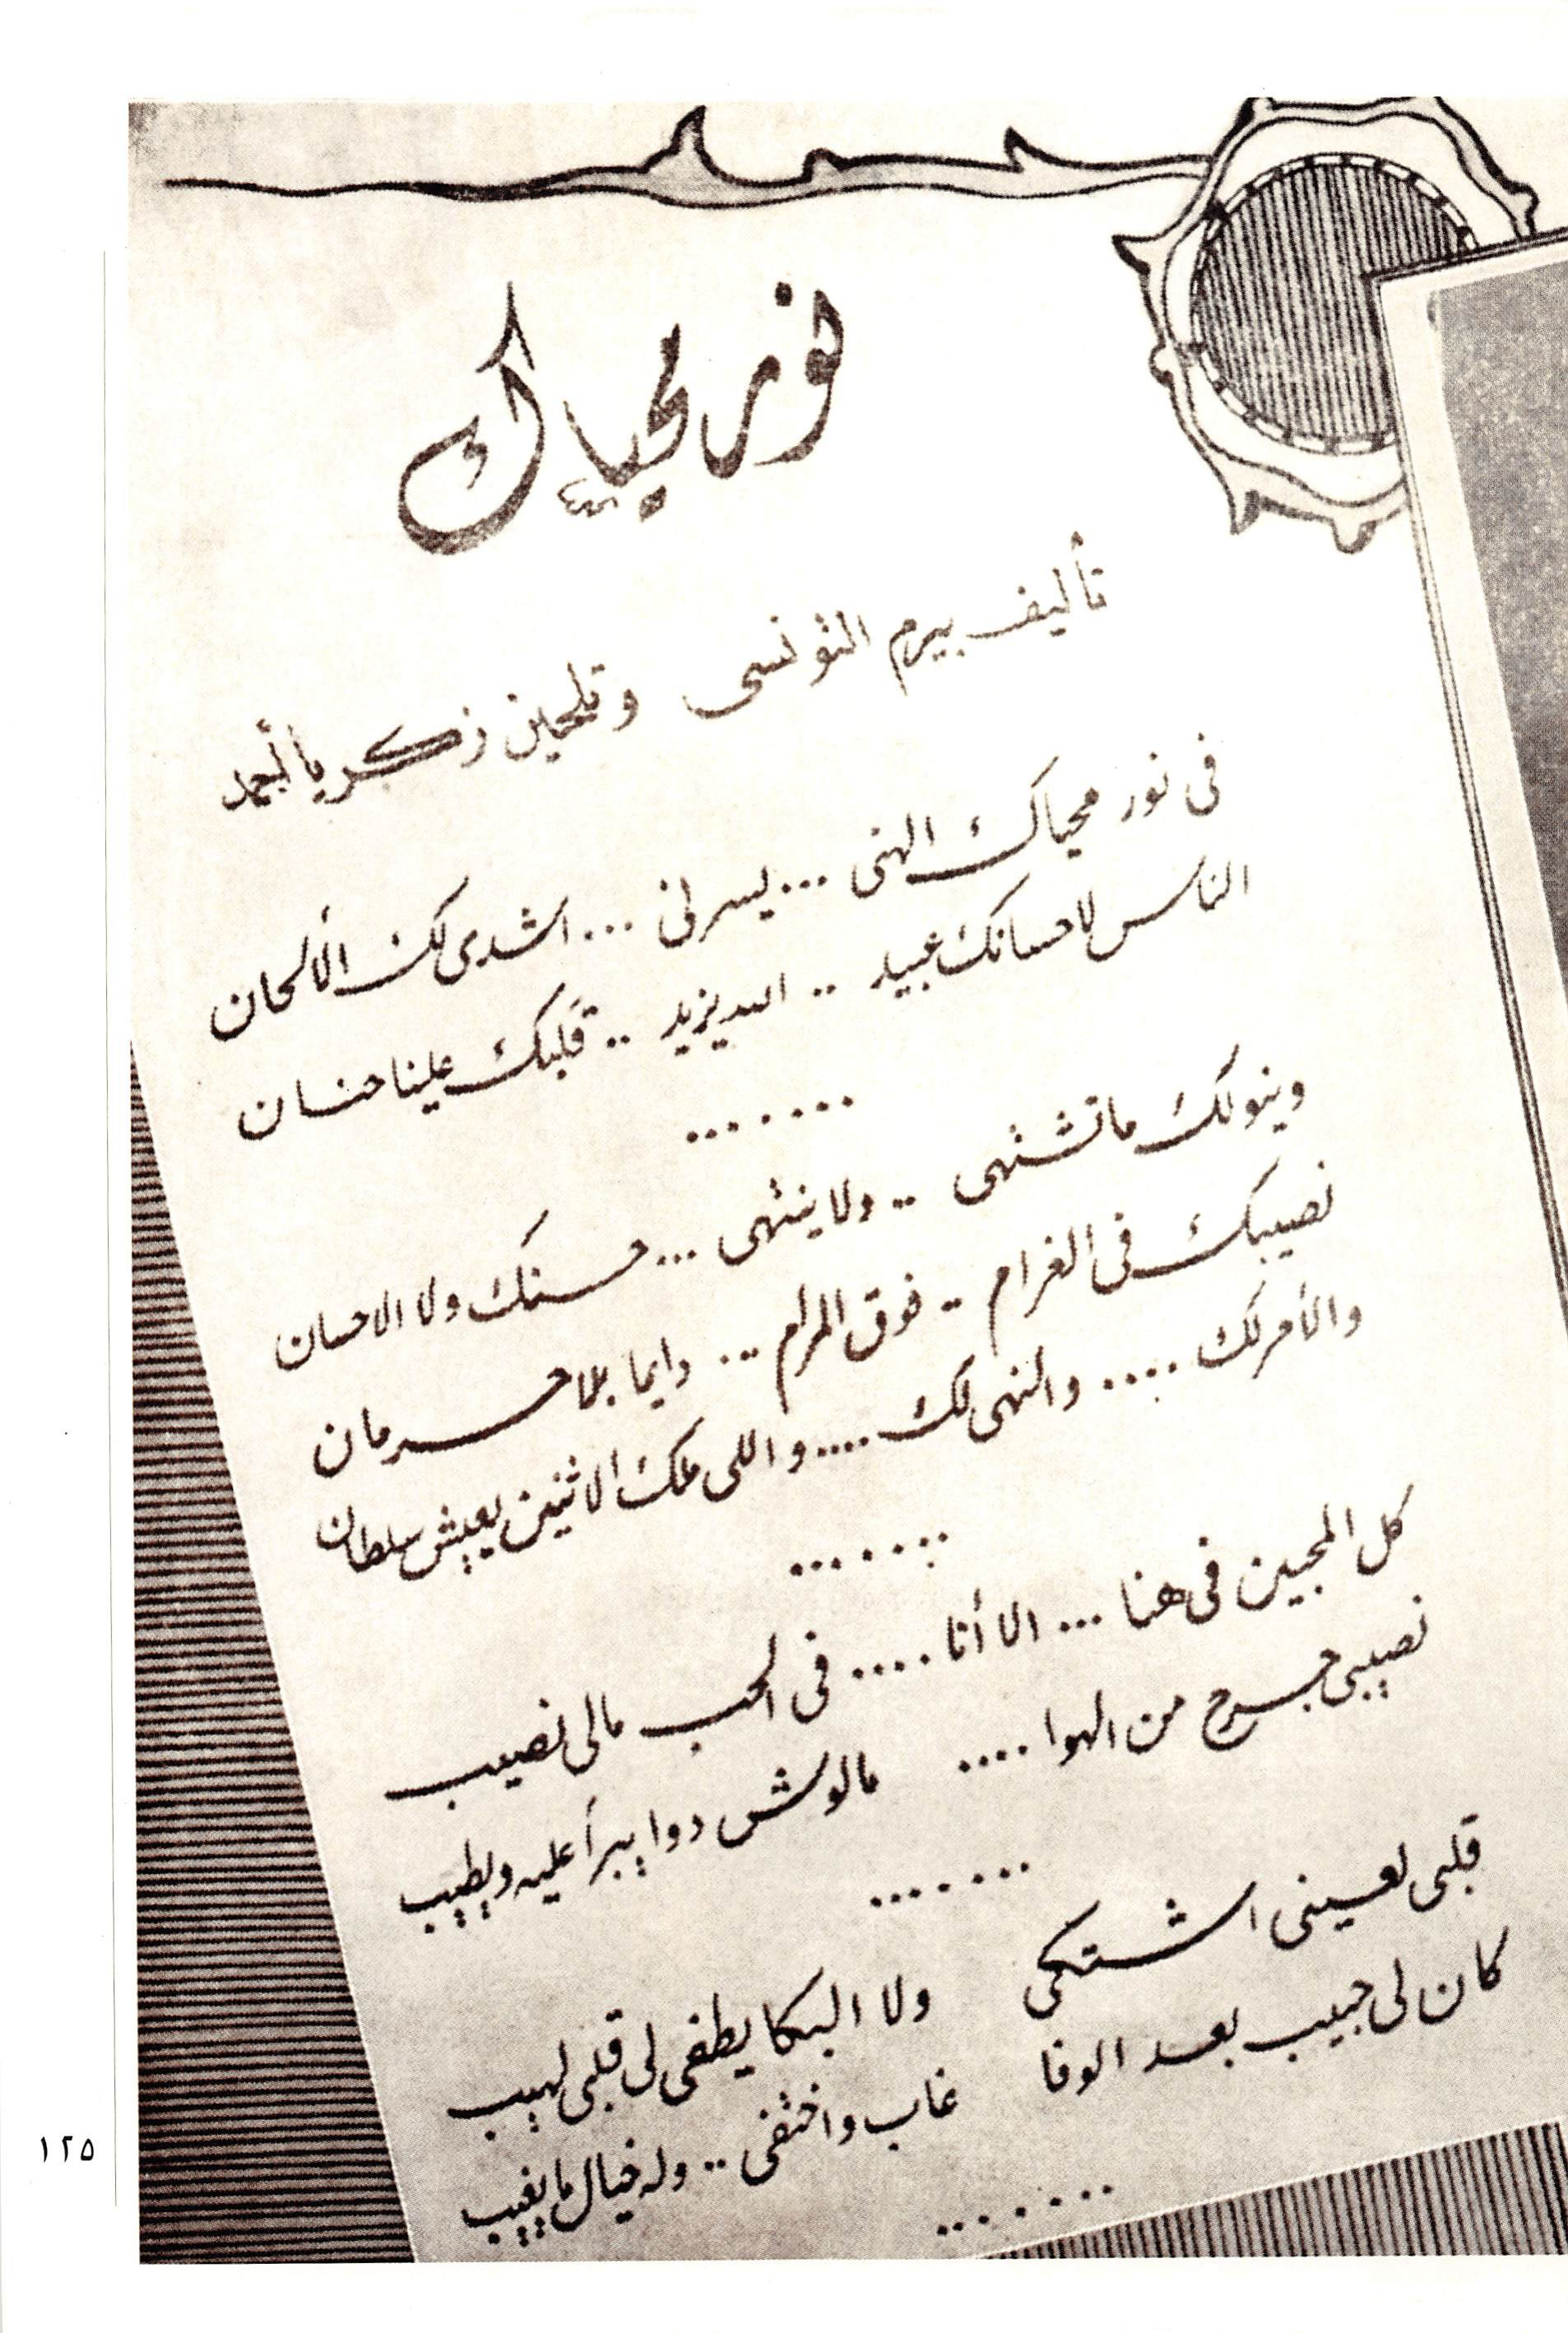 نور محياك
تأليف بيرم التونسى وتلحين زكريا أحمد
فى نور محياك الهنى ... يسرنى ... اشدى لك الألحان
الناس لاحسانك عبيد .. الله يزيد .. قلبك علينا حنان
.......
وينولك ما تشتهى .. ولا ينتهى ... حسنك ولا الاحسان
نصيبك فى الغرام .. فوق المرام ... دايما بلا حرمان
والأمر لك .... والنهى لك .... واللى ملك الاثنين يعيش سلطان
.......
كل المحبين فى هنا ... الا أنا .... فى الحب مالى نصيب
نصيبى جرح من الهوا .... مالوش دوا يبرأ عليه ويطيب
.......
قلبى لعينى اشتكى ولا البكا يطفى لى قلبى لهيب
كان لى حبيب بعد الوفا غاب واختفى .. وله خيال ما يغيب
.......
١٢٥